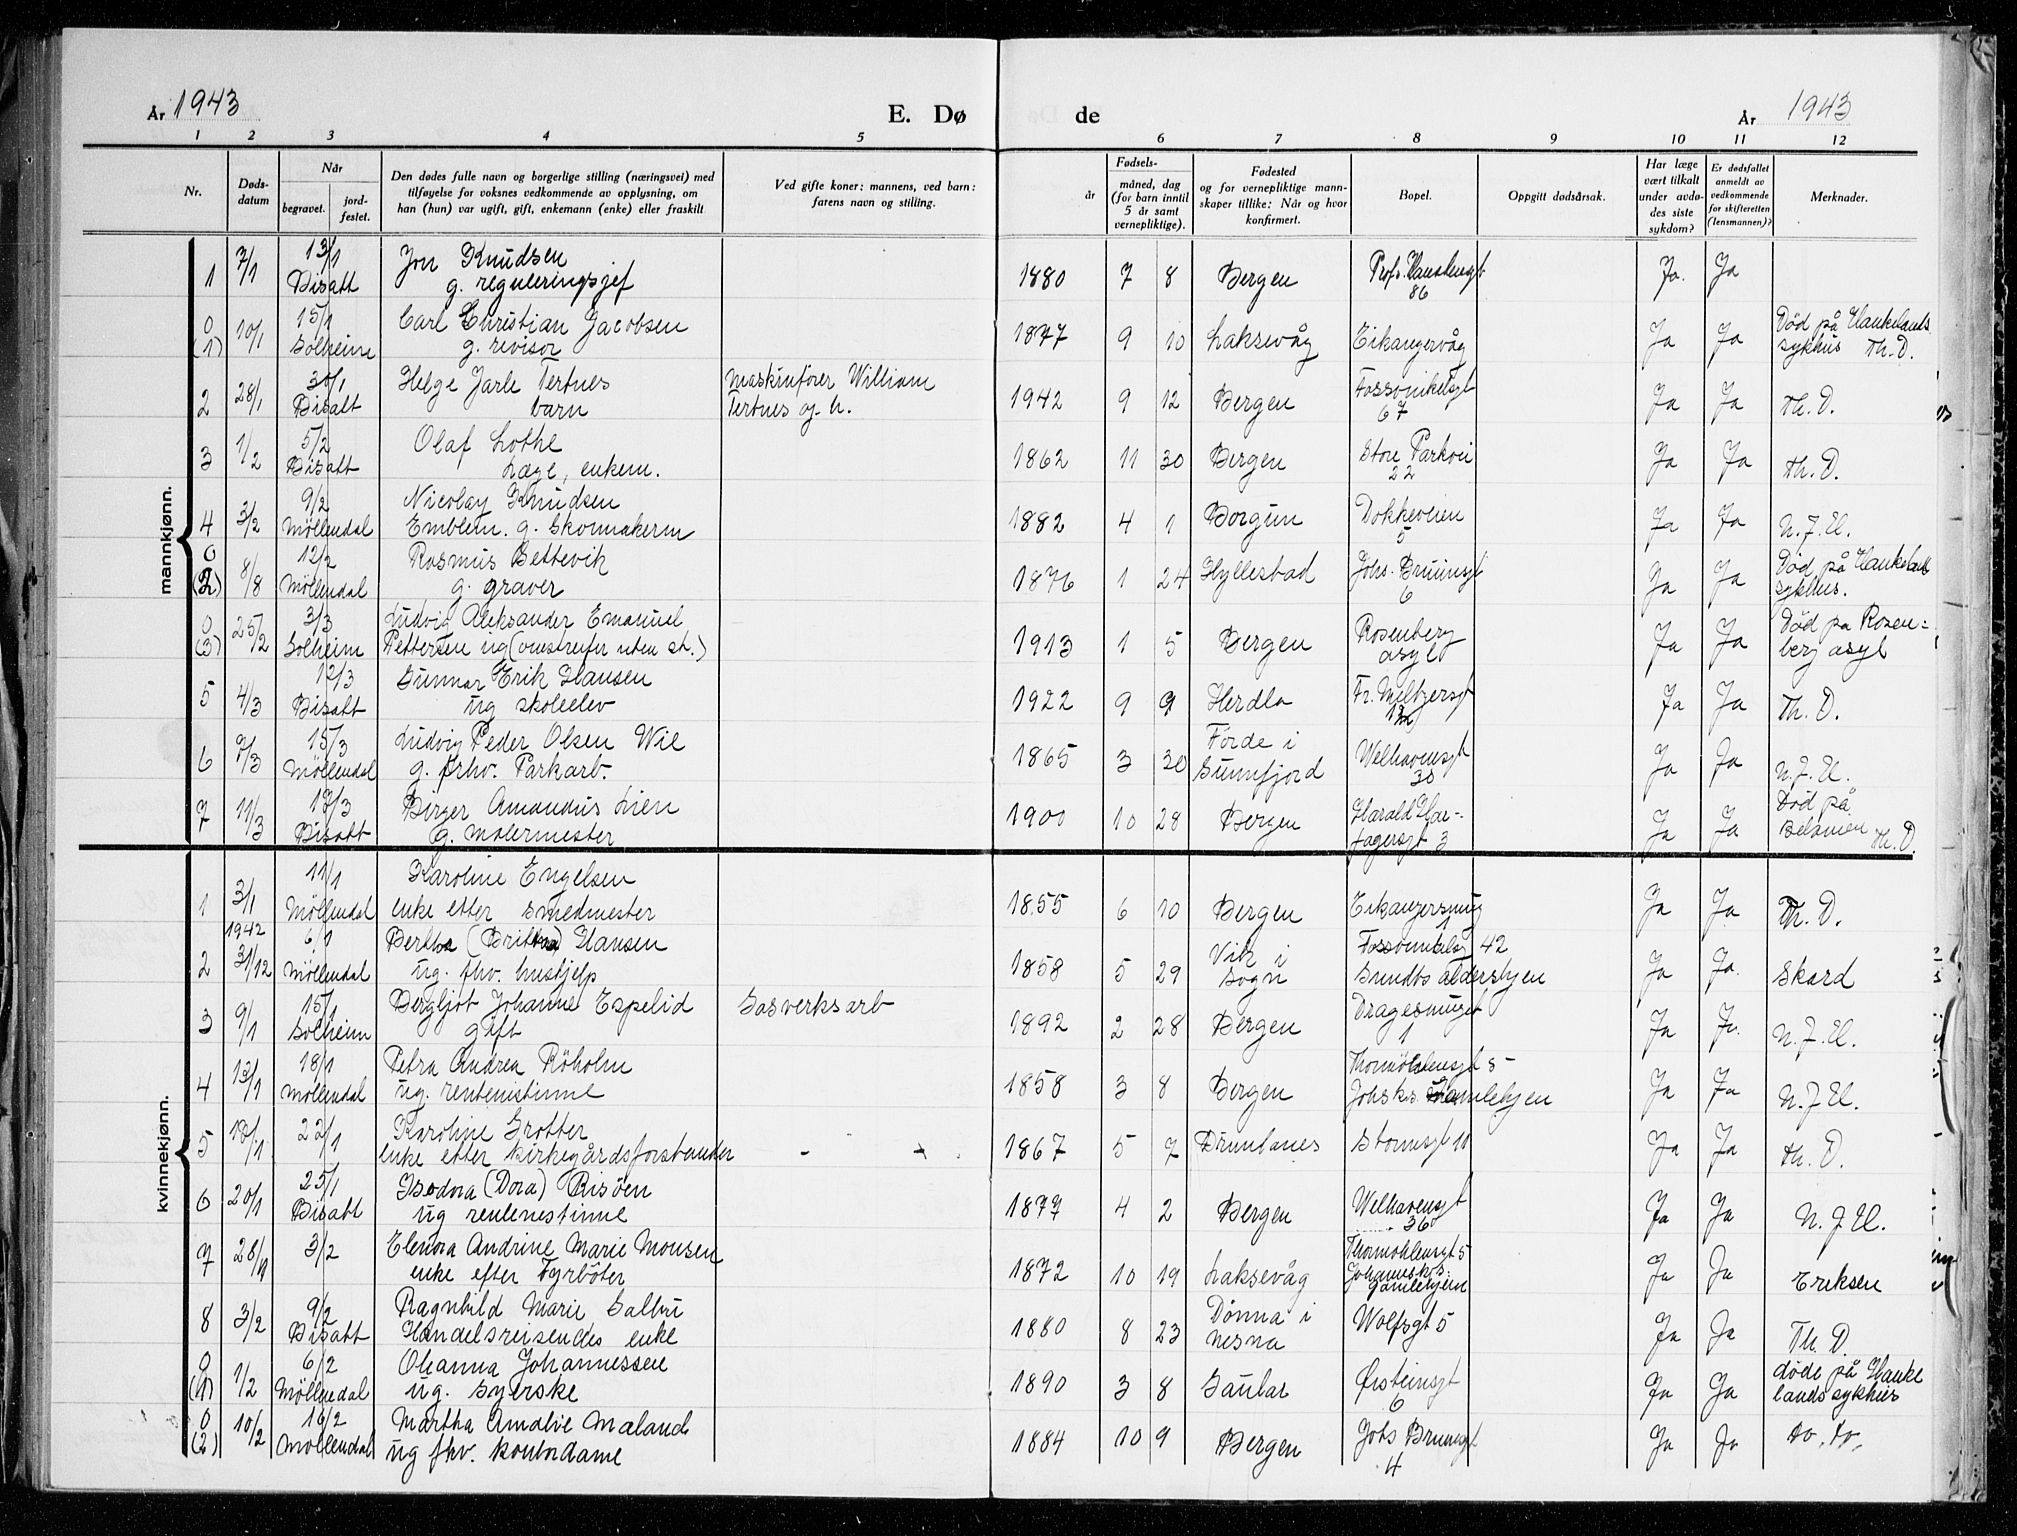 År 1943 E. Dø de År 1943
1 2 3 4 5 6 7 8 9 10 11 12
Nr. Døds-datum Når begravet. jord-festet. Den dødes fulle navn og borgerlige stilling (næringsvei) med tilføyelse for voksnes vedkommende av opplysning, om han (hun) var ugift, gift, enkemann (enke) eller fraskilt Ved gifte koner: mannens, ved barn: farens navn og stilling. Fødsels- år måned, dag (for barn inntil 5 år samt vernepliktige). Fødested og for vernepliktige mann-skaper tillike: Når og hvor konfirmert. Bopel. Oppgitt dødsårsak. Har læge vært tilkalt under avdø-des siste sykdom? Er dødsfallet anmeldt av vedkommende for skifteretten (lensmannen)? Merknader.
mannkjønn.
1 7/1 13/1 Bisatt Jon Knudsen g. reguleringsjef 1880 7 8 Bergen Prof. Hanstensgt 86 Ja. Ja
0 (1) 10/1 15/1 Solheim Carl Christian Jacobsen g. revisor 1877 9 10 Laksevåg Eikangervåg Ja Ja Død på Haukelands sykhus Th. D.
2 28/1 30/1 Bisatt Helge Jarle Tertnes barn Maskinfører William Tertnes og h. 1942 9 12 Bergen Fossvinkelsgt 67 Ja Ja Th. D.
3 1/2 5/2 Bisatt Olaf Lothe Læge, enkem. 1862 11 30 Bergen Store Parkvei 22 Ja Ja Th. D.
4 3/2 9/2 Möllendal Nicolay Knudsen Emblem. g. Skomakerm 1882 4 1 Borgun Dokkeveien 5 Ja Ja N. J. H.
0 (2) 8/8 12/2 Möllendal Rasmus Bettevik g. graver 1876 1 24 Hyllestad Johs. Bruunsgt 6 Ja Ja Død på Haukelands sykhus.
0 (3) 25/2 3/3 Solheim Ludvig Aleksander Emanuel Pettersen ug (omstreifer uten st.) 1913 1 5 Bergen Rosenberg asyl Ja Ja Død på Rosen= berg asyl
5 4/3 12/3 Bisatt Gunnar Erik Hansen ug skoleelev 1922 9 9 Herdla Fr. Meltzersgt Ja Ja Th. D.
6 9/3 15/3 Möllendal Ludvig Peder Olsen Wie g. frhv. Parkarb. 1865 3 20 Förde i Sunnfjord Welhavensgt 30 Ja Ja N. J. H.
7 11/3 17/3 Bisatt Birger Amandus Lien g. malermester 1900 10 28 Bergen Harald Hår-fagersgt 3 Ja Ja Död på Betanien Th. D.
kvinnekjønn.
1 3/1 11/1 Möllendal Karoline Engelsen enke etter smedmester 1855 6 10 Bergen Eikangersmug Ja Ja Th. D.
2 1942 31/12 6/1 Möllendal Bertha (Britha) Hansen ug. fhv. huskjelp 1858 5 29 Vik i Sogn Fossvinkelsg 42 Sundts aldershjem Ja Ja. Skard
3 9/1 15/1 Solheim Bergljot Johanne Espelid gift Gasverksarb 1892 2 28 Bergen Dragesmuget 1 Ja Ja. N. J. H.
4 13/1 18/1 Möllendal Petra Andrea Röholm ug. rentenistinne 1858 3 8 Bergen Thormöhlensgt 5 - Johsks. gamlehjem Ja Ja N. J H.
5 18/1 22/1 Karoline Grotter enke etter kirkegårdsforstander 1867 5 7 Stormsgt 11 Ja Ja Th. D.
6 20/1 25/1 Bisatt Isodora (Dora) Risöen ug rentenestinne 1877 4 2 Bergen Welhavensgt 36 Ja Ja N. J H.
7 28/1 3/2 Elenora Andrine Marie Monsen enke efter Fyrböter 1872 10 19 Laksevåg Thormöhlensgt 5 Johanneskis. Gamlehjem Ja Ja Eriksen
8 3/2 9/2 Bisatt Ragnhild Marie Salbu Handelsreisendes enke 1880 8 23 Dönna i Nesna Wolfsgt 5 Ja Ja Th. D.
0 (1) 1/2 6/2 Möllendal Oleanna Johannessen ug. Syerske 1890 3 8 Gaular Østeinsgt 6 Ja Ja döde på Hauke lands sykhus
0 (2) 10/2 16/2 Möllendal Martha Amalie Maland ug fhv. kontordame 1884 10 9 Bergen Johs Brunsgt 4 Ja Ja do. do.